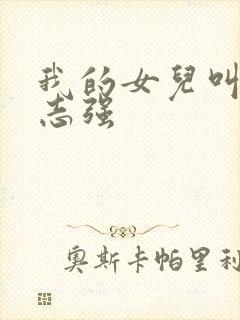 我的女兒叫
志强
奥斯卡帕里利